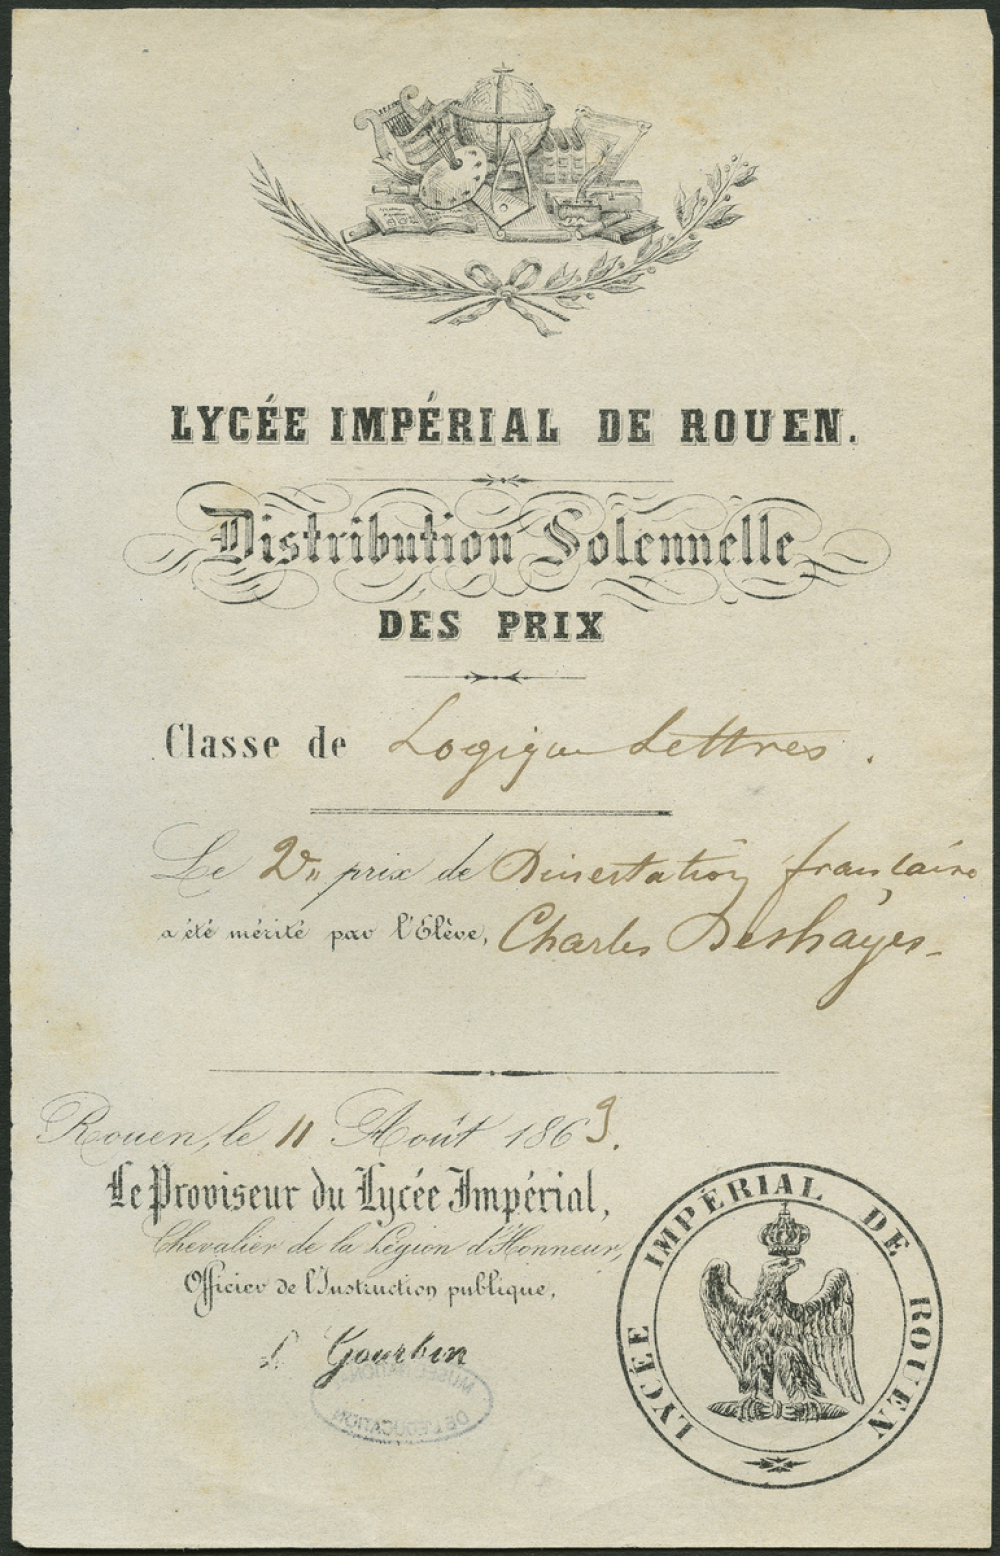 LYCÉE IMPÉRIAL DE ROUEN.
Distribution Solennelle
DES PRIX
Classe de Logique Lettres.
Le 2d prix de Dissertation française
a été mérité par l'Elève, Charles Deshayes-
Rouen, le 11 Août 1869.
Le Proviseur du Lycée Impérial,
Chevalier de la Légion d'Honneur,
Officier de l'Instruction publique,
Gourbin
LYCÉE IMPÉRIAL DE ROUEN
DE L'EDUCATION